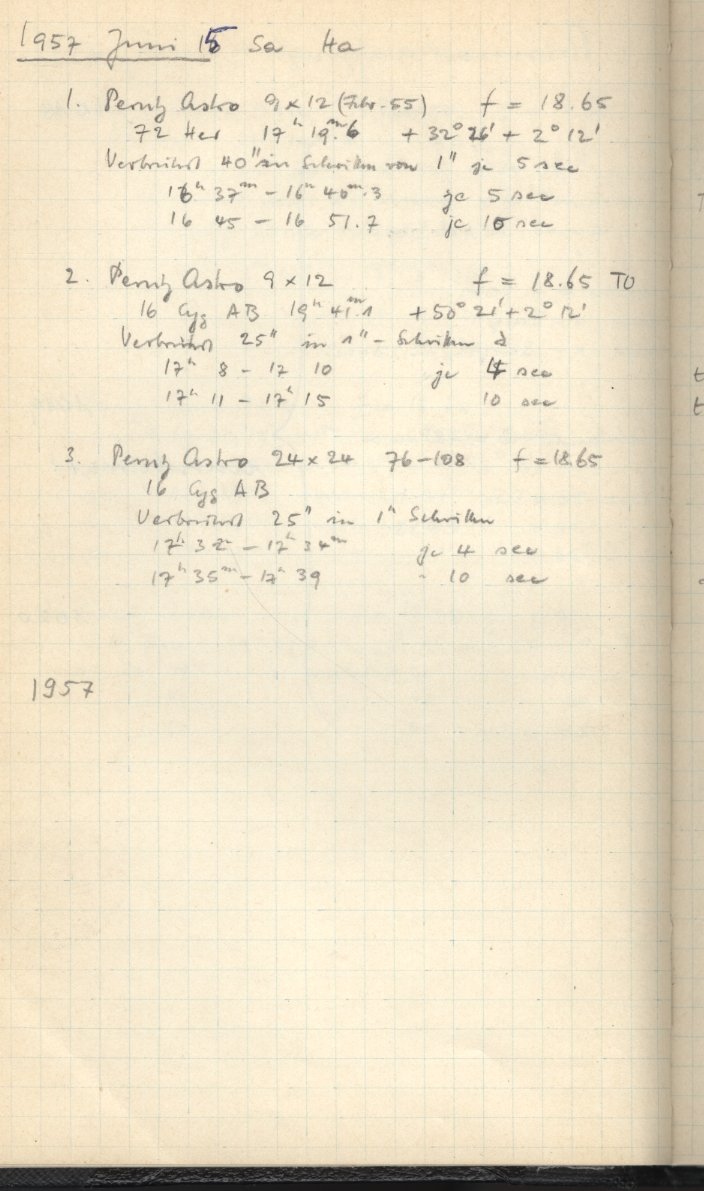 1957 Juni 15 Sa Ha
1. Perutz Astro 9 x 12 (Febr. 55) f = 18.65
72 Her 17ʰ 19ᵐ.6 + 32° 26' + 2° 12'
Verbreitert 40" in Schritten von 1" je 5 sec
16ʰ 37ᵐ - 16ʰ 40ᵐ.3 je 5 sec
16 45 - 16 51.7 je 10 sec
2. Perutz Astro 9 x 12 f = 18.65 TO
16 Cyg AB 19ʰ 41ᵐ.1 + 50° 21' + 2° 12'
Verbreitert 25" in 1" - Schritten
17ʰ 8 - 17 10 je 4 sec
17ʰ 11 - 17ʰ 15 10 sec
3. Perutz Astro 24 x 24 76-108 f = 18.65
16 Cyg AB
Verbreitert 25" in 1" Schritten
17ʰ 32 - 17ʰ 34ᵐ je 4 sec
17ʰ 35ᵐ - 17ʰ 39 " 10 sec
1957